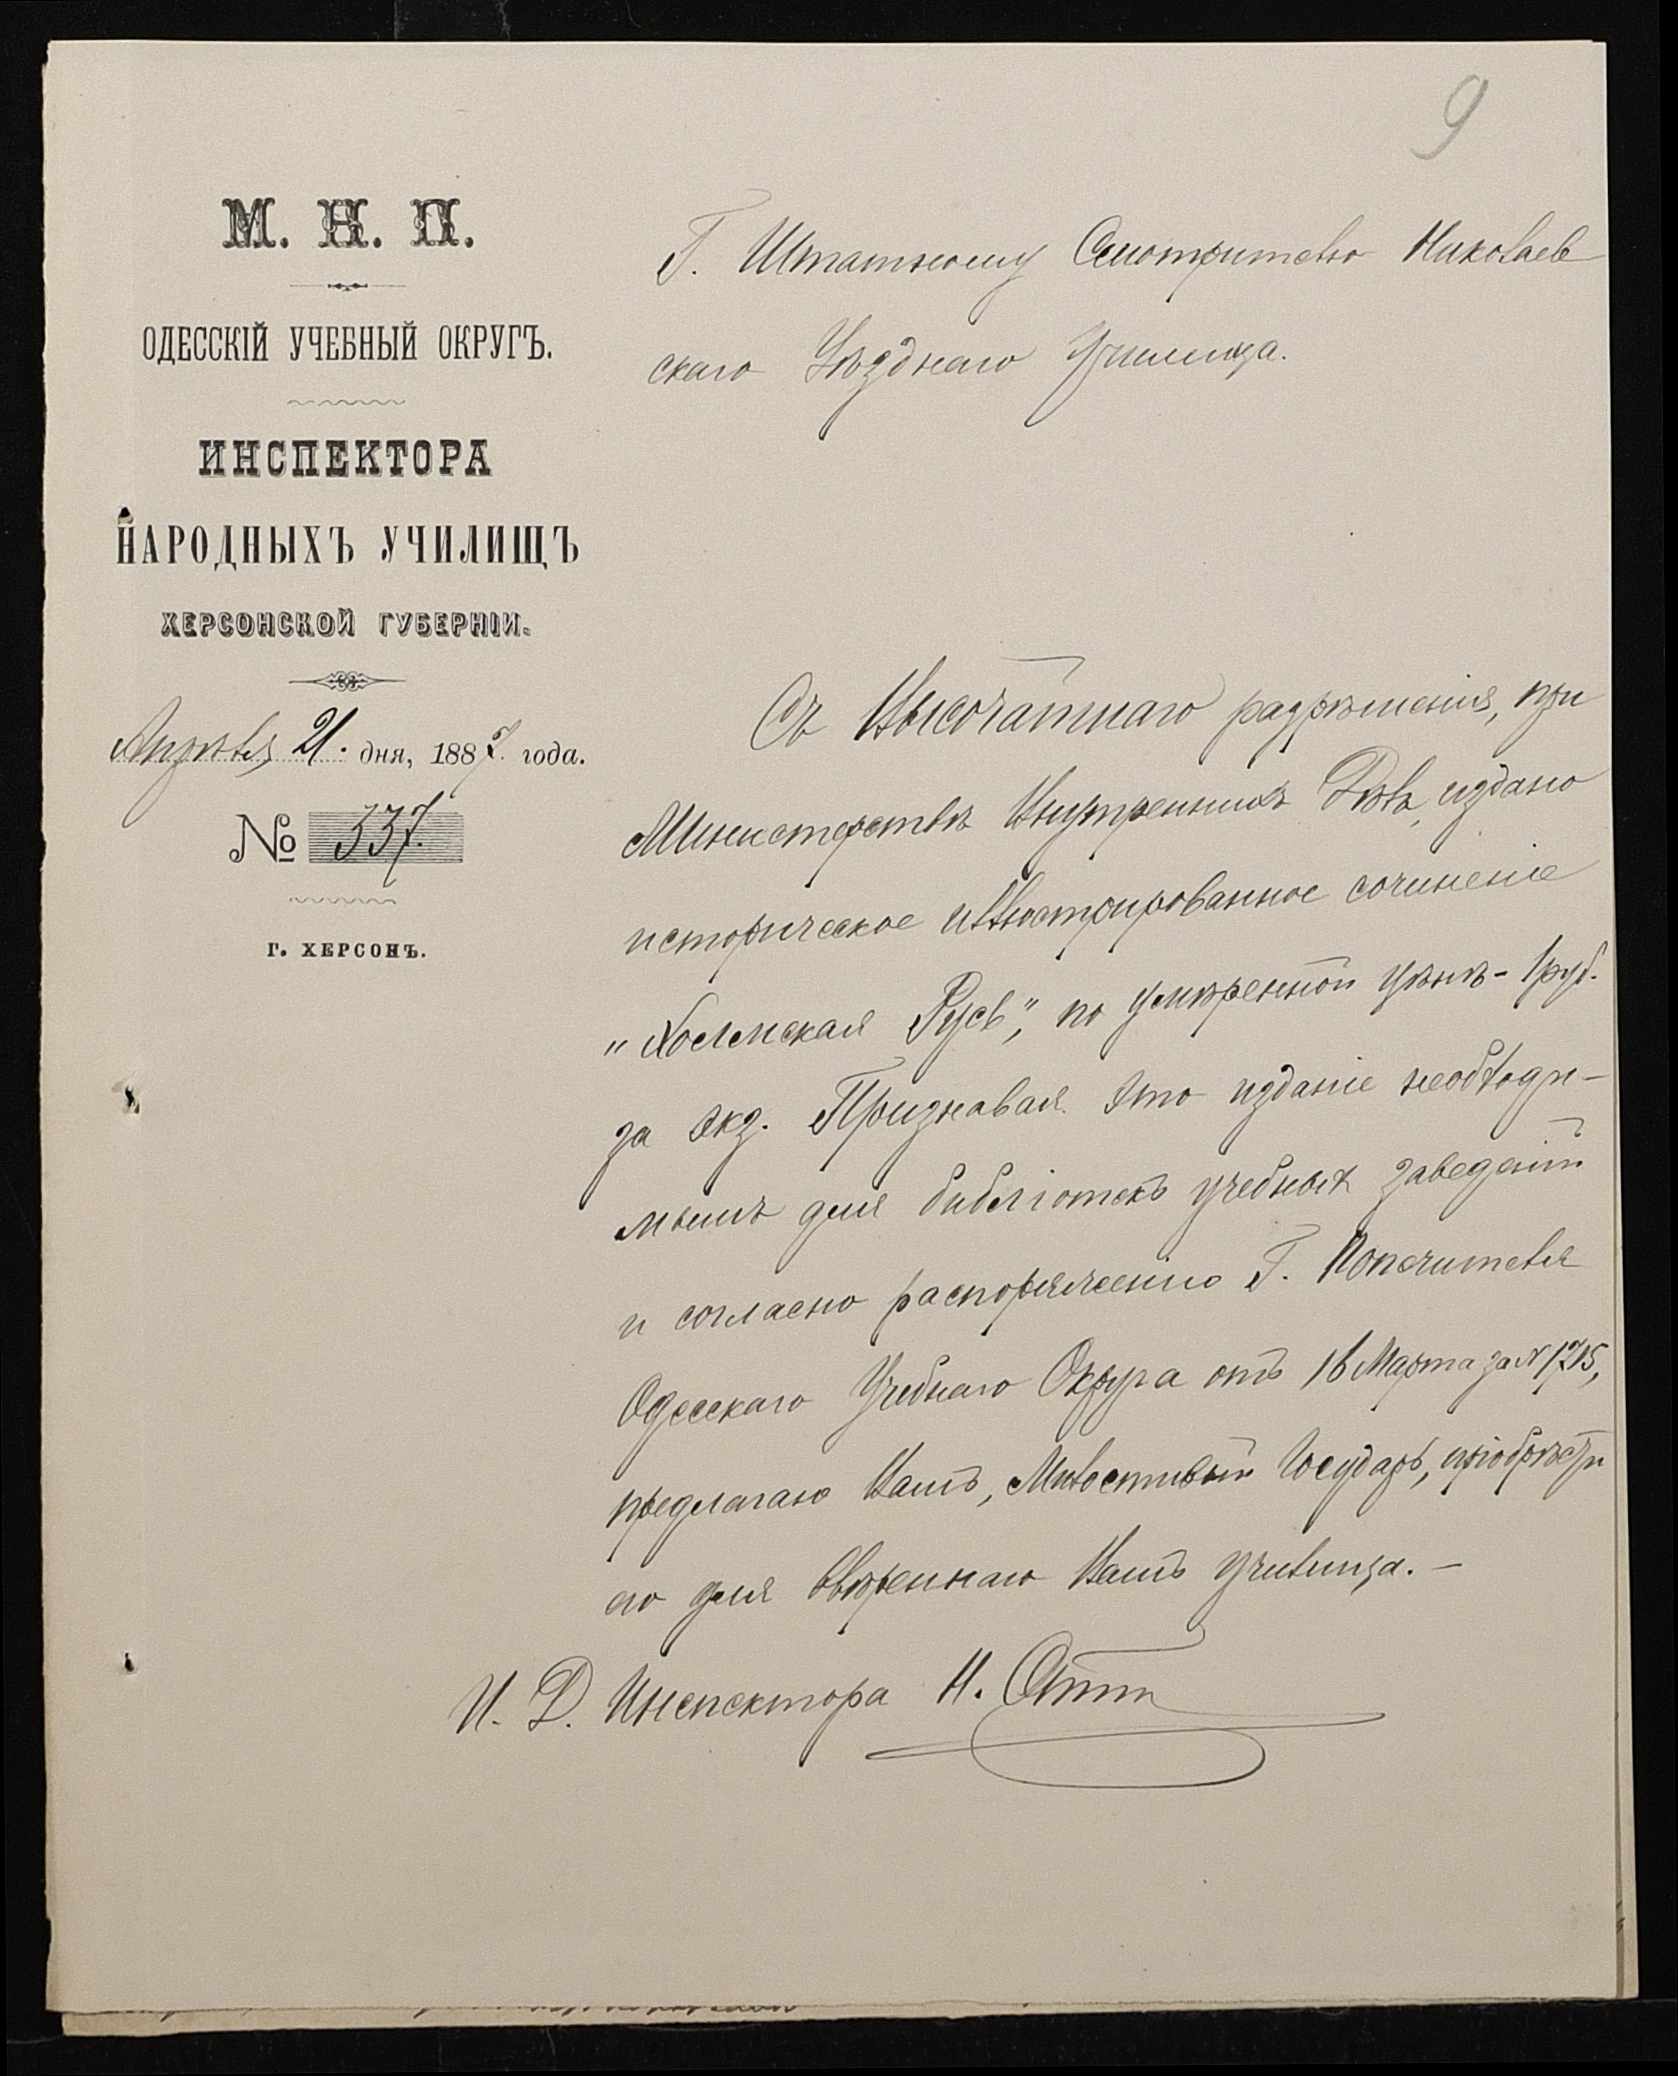 9
М. Н. П.
ОДЕССКІЙ УЧЕБНЫЙ ОКРУГЪ.
ИНСПЕКТОРА
НАРОДНЫХЪ УЧИЛИЩЪ
ХЕРСОНСКОЙ ГУБЕРНІИ.
Апрѣля 21. дня, 1887. года.
№ 337.
г. ХЕРСОНЪ.
Г. Штатному Смотрителю Николаев
скаго Уѣзднаго Училища.
Съ Высочайшаго разрѣшенія, при
Министерствѣ Внутреннихъ Дѣлъ, издано
историческое иллюстрированное сочиненіе
„Холмская Русь", по умѣренной цѣнѣ - 1 руб.
за экз. Признавая это изданіе необходи-
мымъ для библіотекъ учебныхъ заведеній
и согласно распоряженію Г. Попечителя
Одесскаго Учебнаго Округа отъ 16 Марта за № 1715,
предлагаю Вамъ, Милостивый Государь, пріобрѣсти
его для ввѣреннаго Вамъ училища. —
И. Д. Инспектора Н. Отт